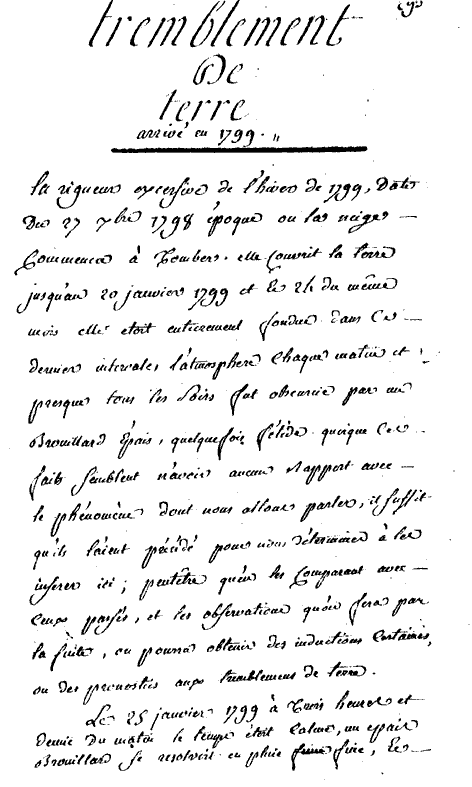 tremblement
De
terre
arrivé en 1799.
la rigueur excessive de l'hiver de 1799, Date
Du 27 xbre 1798 époque ou la neige
Commença à Tomber. elle Couvrit la terre
jusqu'au 20 janvier 1799 et le 24 du même
mois elle etoit entierement fondue dans Ce
dernier intervale, l'atmosphere Chaque matin et
presque tous les soirs fut obscurcie par un
Brouillard Épais, quelquefois fétide quoique Ces
faits semblent n'avoir aucun Rapport avec
le phénomène dont nous allons parler, il suffit
qu'ils l'aient précédé pour nous déterminer à les
inserer ici ; peutêtre qu'en les Comparant avec
Ceux passés, et les observations qu'on fera par
la suite, on pourra obtenir des inductions Certaines,
ou des pronostics aux tremblemens de terre.
Le 25 janvier 1799 à Trois heures et
demie Du matin le temps étoit Calme, un epais
Brouillard se resolvoit en pluie fine, Le